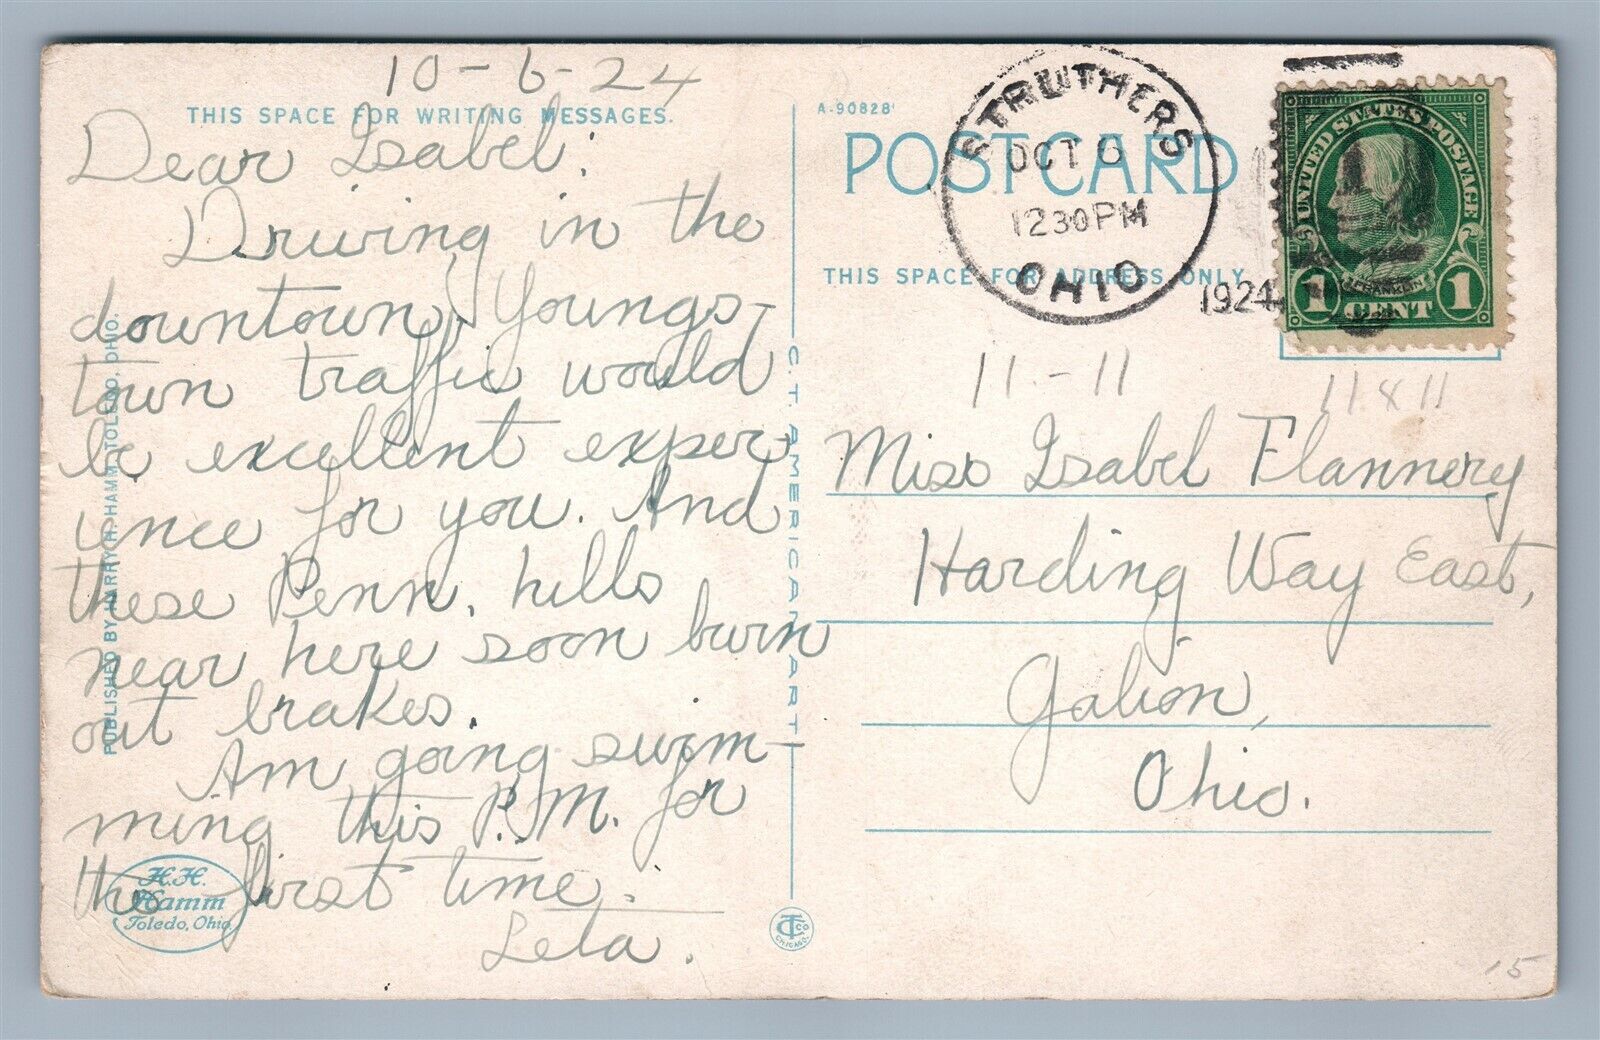 10-6-24
THIS SPACE FOR WRITING MESSAGES.
Dear Isabel:
Driving in the
downtown Youngs-
town traffic would
be excellent exper-
ience for you. And
these Penn. hills
near here soon burn
out brakes.
Am going swim-
ming this P.M. for
the first time.
Leta.
PUBLISHED BY HARRY H. HAMM, TOLEDO, OHIO.
H.H.
Hamm
Toledo, Ohio
C.T. AMERICAN ART
CT CO
CHICAGO.
A-90828
POST CARD
THIS SPACE FOR ADDRESS ONLY
STRUTHERS
OCT 6
1230PM
OHIO
1924
UNITED STATES POSTAGE
FRANKLIN
1 CENT 1
11-11
11 x 11
Miss Isabel Flannery
Harding Way East,
Galion,
Ohio.
15